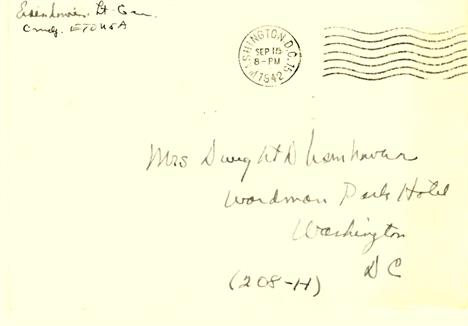 Eisenhower, Lt. Gen.
Cmdg. ETOUSA
WASHINGTON, D.C. 15
SEP 15
8-PM
1942
Mrs Dwight D Eisenhower
Wardman Park Hotel
Washington
DC
(208-H)